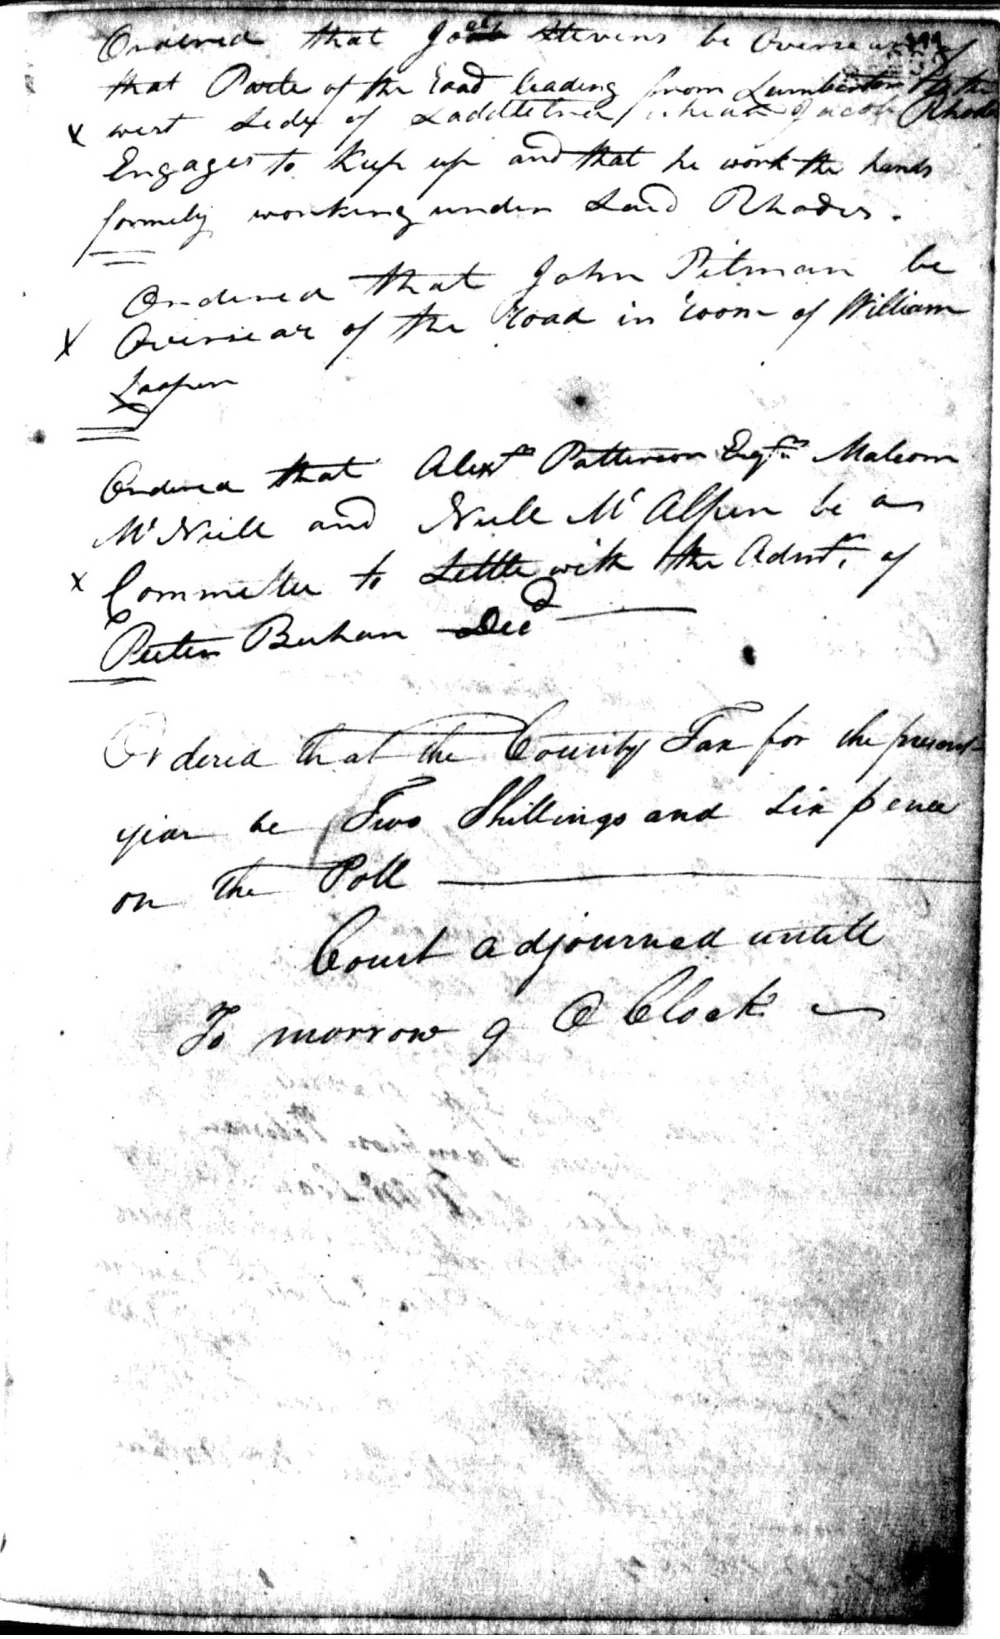 Ordered that Joab Stevens be Overseear of
that Parte of the road leading from Lumberton to the
x west Side of Saddletree whear Jacob Rhodes
Engages to Keep up and that he work the hands
formely working under Said Rhodes.
Ordered that John Pitman be
x Overseear of the road in room of William
Ordered that Alexr Patterson Esqr Malcom
Mc Neill and Neill Mc Alpen be a
x Committee to Settle with the Admr. of
Peeter Buhan Decd
Ordered that the County Tax for the present
year be Two Shillings and Six pence
on the Poll
Court adjourned untill
To morrow 9 O Clock